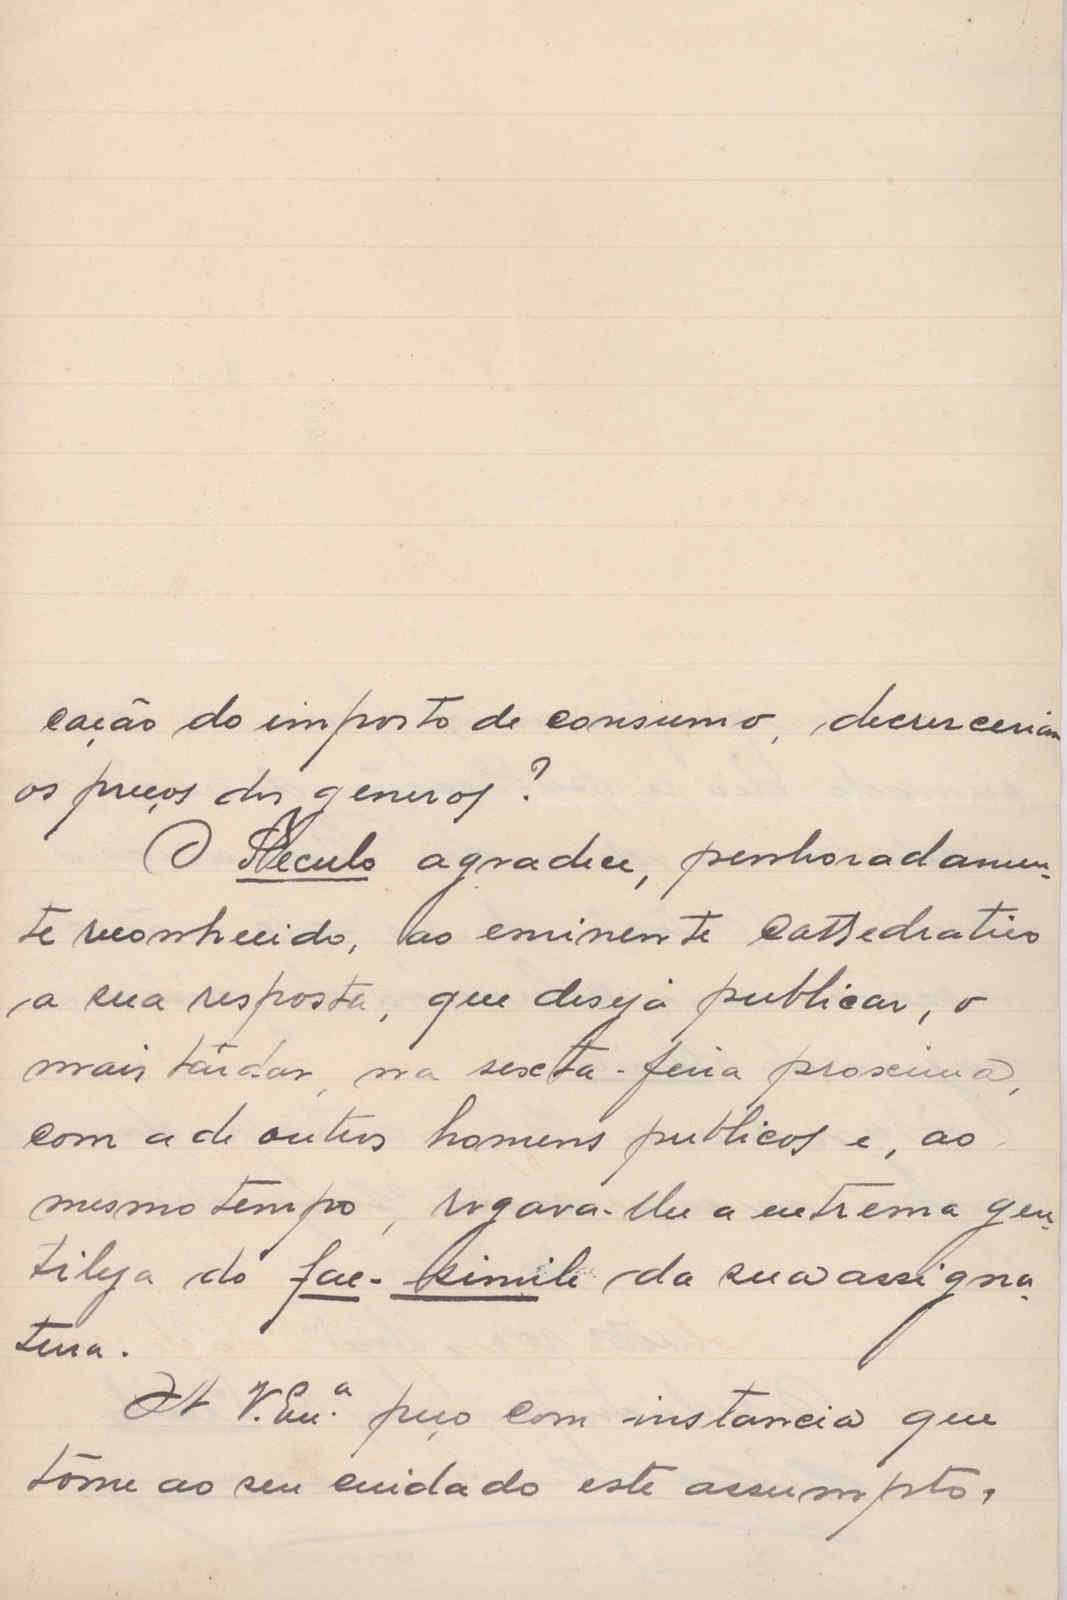 cação do imposto de consumo, decresceriam
os preços dos generos?
O Seculo agradece, penhoradamen-
te reconhecido, ao eminente cathedratico
a sua resposta, que deseja publicar, o
mais tardar, na sexta-feira proxima,
com a de outros homens publicos e, ao
mesmo tempo, rogava-lhe a extrema gen-
tileza do fac-simile da sua assigna-
tura.
A V. Exc.ª peço com instancia que
tôme ao seu cuidado este assumpto,